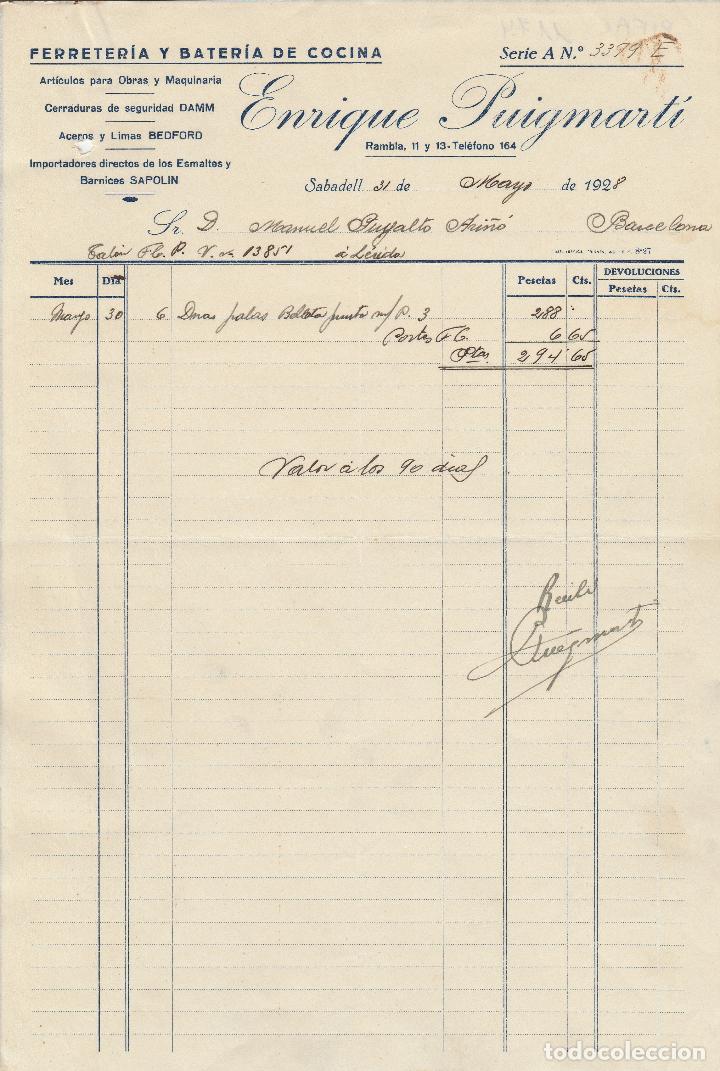 FERRETERÍA Y BATERÍA DE COCINA
Serie A N.º 3379 E
Artículos para Obras y Maquinaria
Cerraduras de seguridad DAMM
Aceros y Limas BEDFORD
Importadores directos de los Esmaltes y
Barnices SAPOLIN
Enrique Puigmartí
Rambla, 11 y 13-Teléfono 164
Sabadell 31 de Mayo de 1928
Sr. D. Manuel Ariñó Barcelona
Talón F.C. P. V. 13851 á Lérida
Mes Día Pesetas Cts. DEVOLUCIONES
Pesetas Cts.
Mayo 30 6 Dnas palas Bellota punta n/ P. 3 288
Portes F.C. 6 65
Ptas 294 65
Valor á los 90 días
Recibí
EPuigmartí
todocoleccion